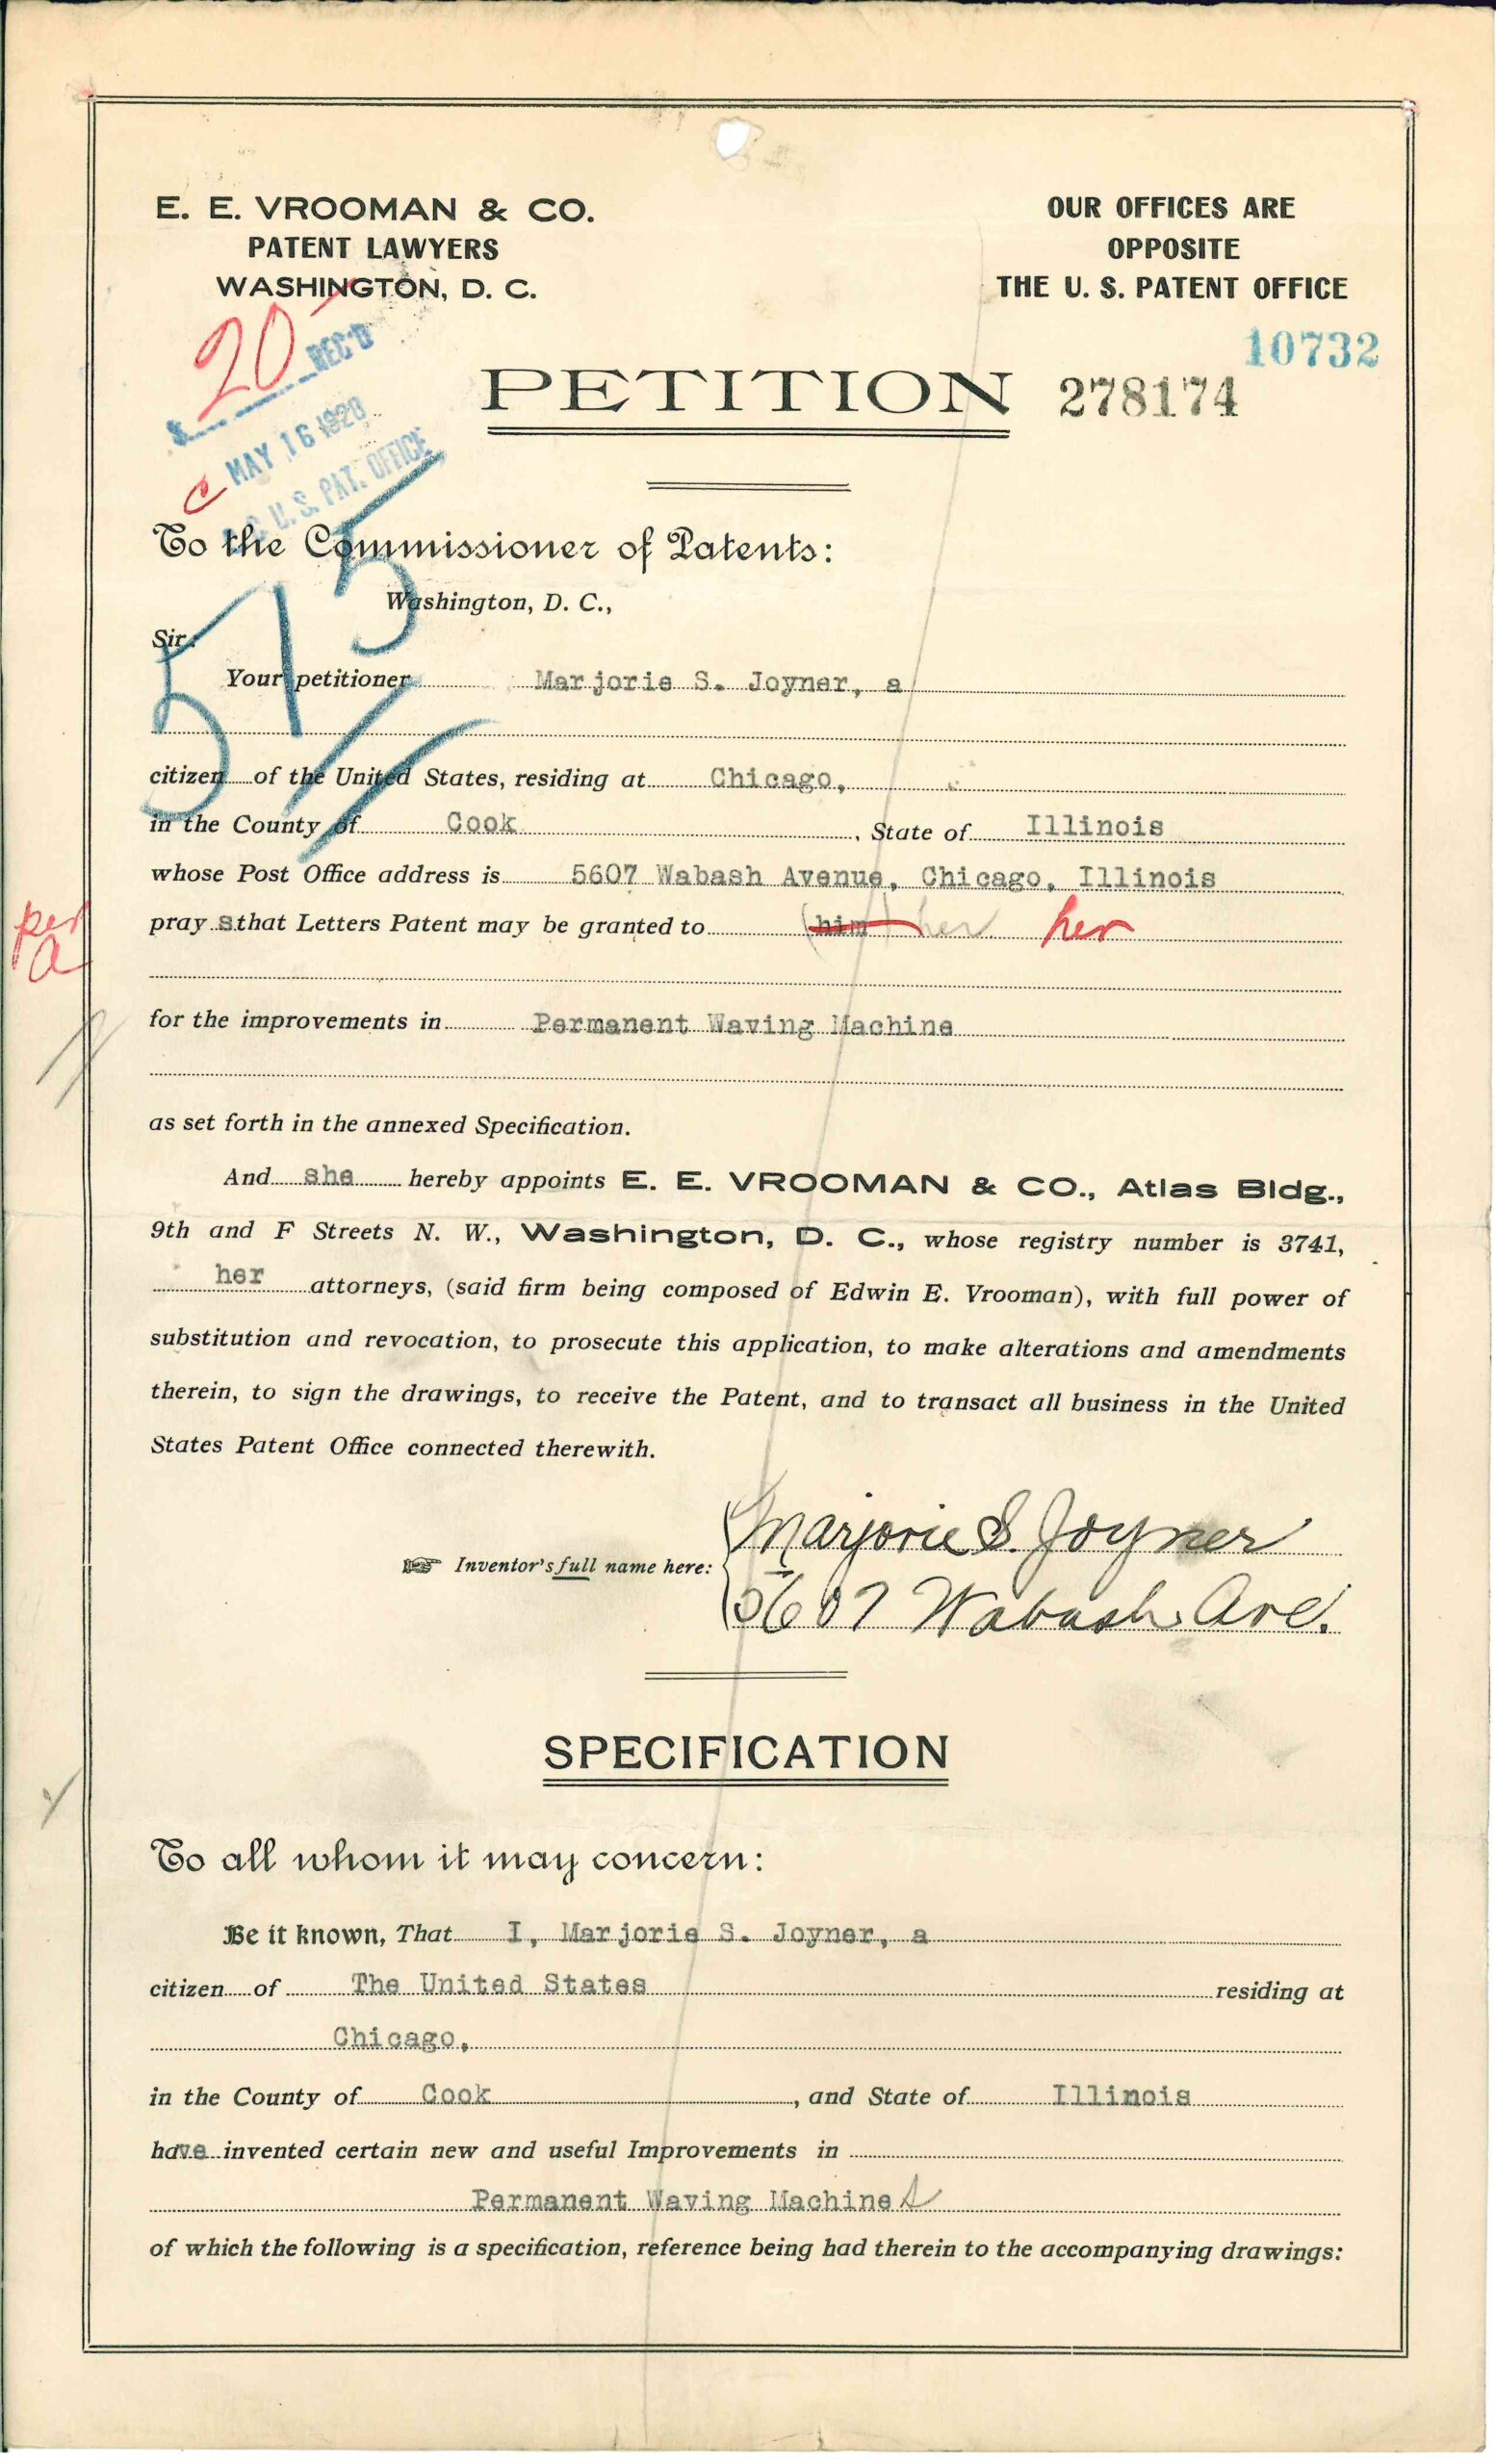 E. E. VROOMAN & CO.
PATENT LAWYERS
WASHINGTON, D. C.
OUR OFFICES ARE
OPPOSITE
THE U. S. PATENT OFFICE
10732
20
$ REC'D
MAY 16 1928
C
U. S. PAT. OFFICE
PETITION 278174
To the Commissioner of Patents:
Washington, D. C.,
Sir:
Your petitioner Marjorie S. Joyner, a
citizen of the United States, residing at Chicago,
in the County of Cook, State of Illinois
whose Post Office address is 5607 Wabash Avenue, Chicago, Illinois
pray s that Letters Patent may be granted to (him) her her
per
a
for the improvements in Permanent Waving Machine
as set forth in the annexed Specification.
And she hereby appoints E. E. VROOMAN & CO., Atlas Bldg.,
9th and F Streets N. W., Washington, D. C., whose registry number is 3741,
her attorneys, (said firm being composed of Edwin E. Vrooman), with full power of
substitution and revocation, to prosecute this application, to make alterations and amendments
therein, to sign the drawings, to receive the Patent, and to transact all business in the United
States Patent Office connected therewith.
Inventor's full name here: Marjorie S. Joyner
5607 Wabash Ave.
SPECIFICATION
To all whom it may concern:
Be it known, That I, Marjorie S. Joyner, a
citizen of The United States residing at
Chicago,
in the County of Cook, and State of Illinois
have invented certain new and useful Improvements in
Permanent Waving Machines
of which the following is a specification, reference being had therein to the accompanying drawings: